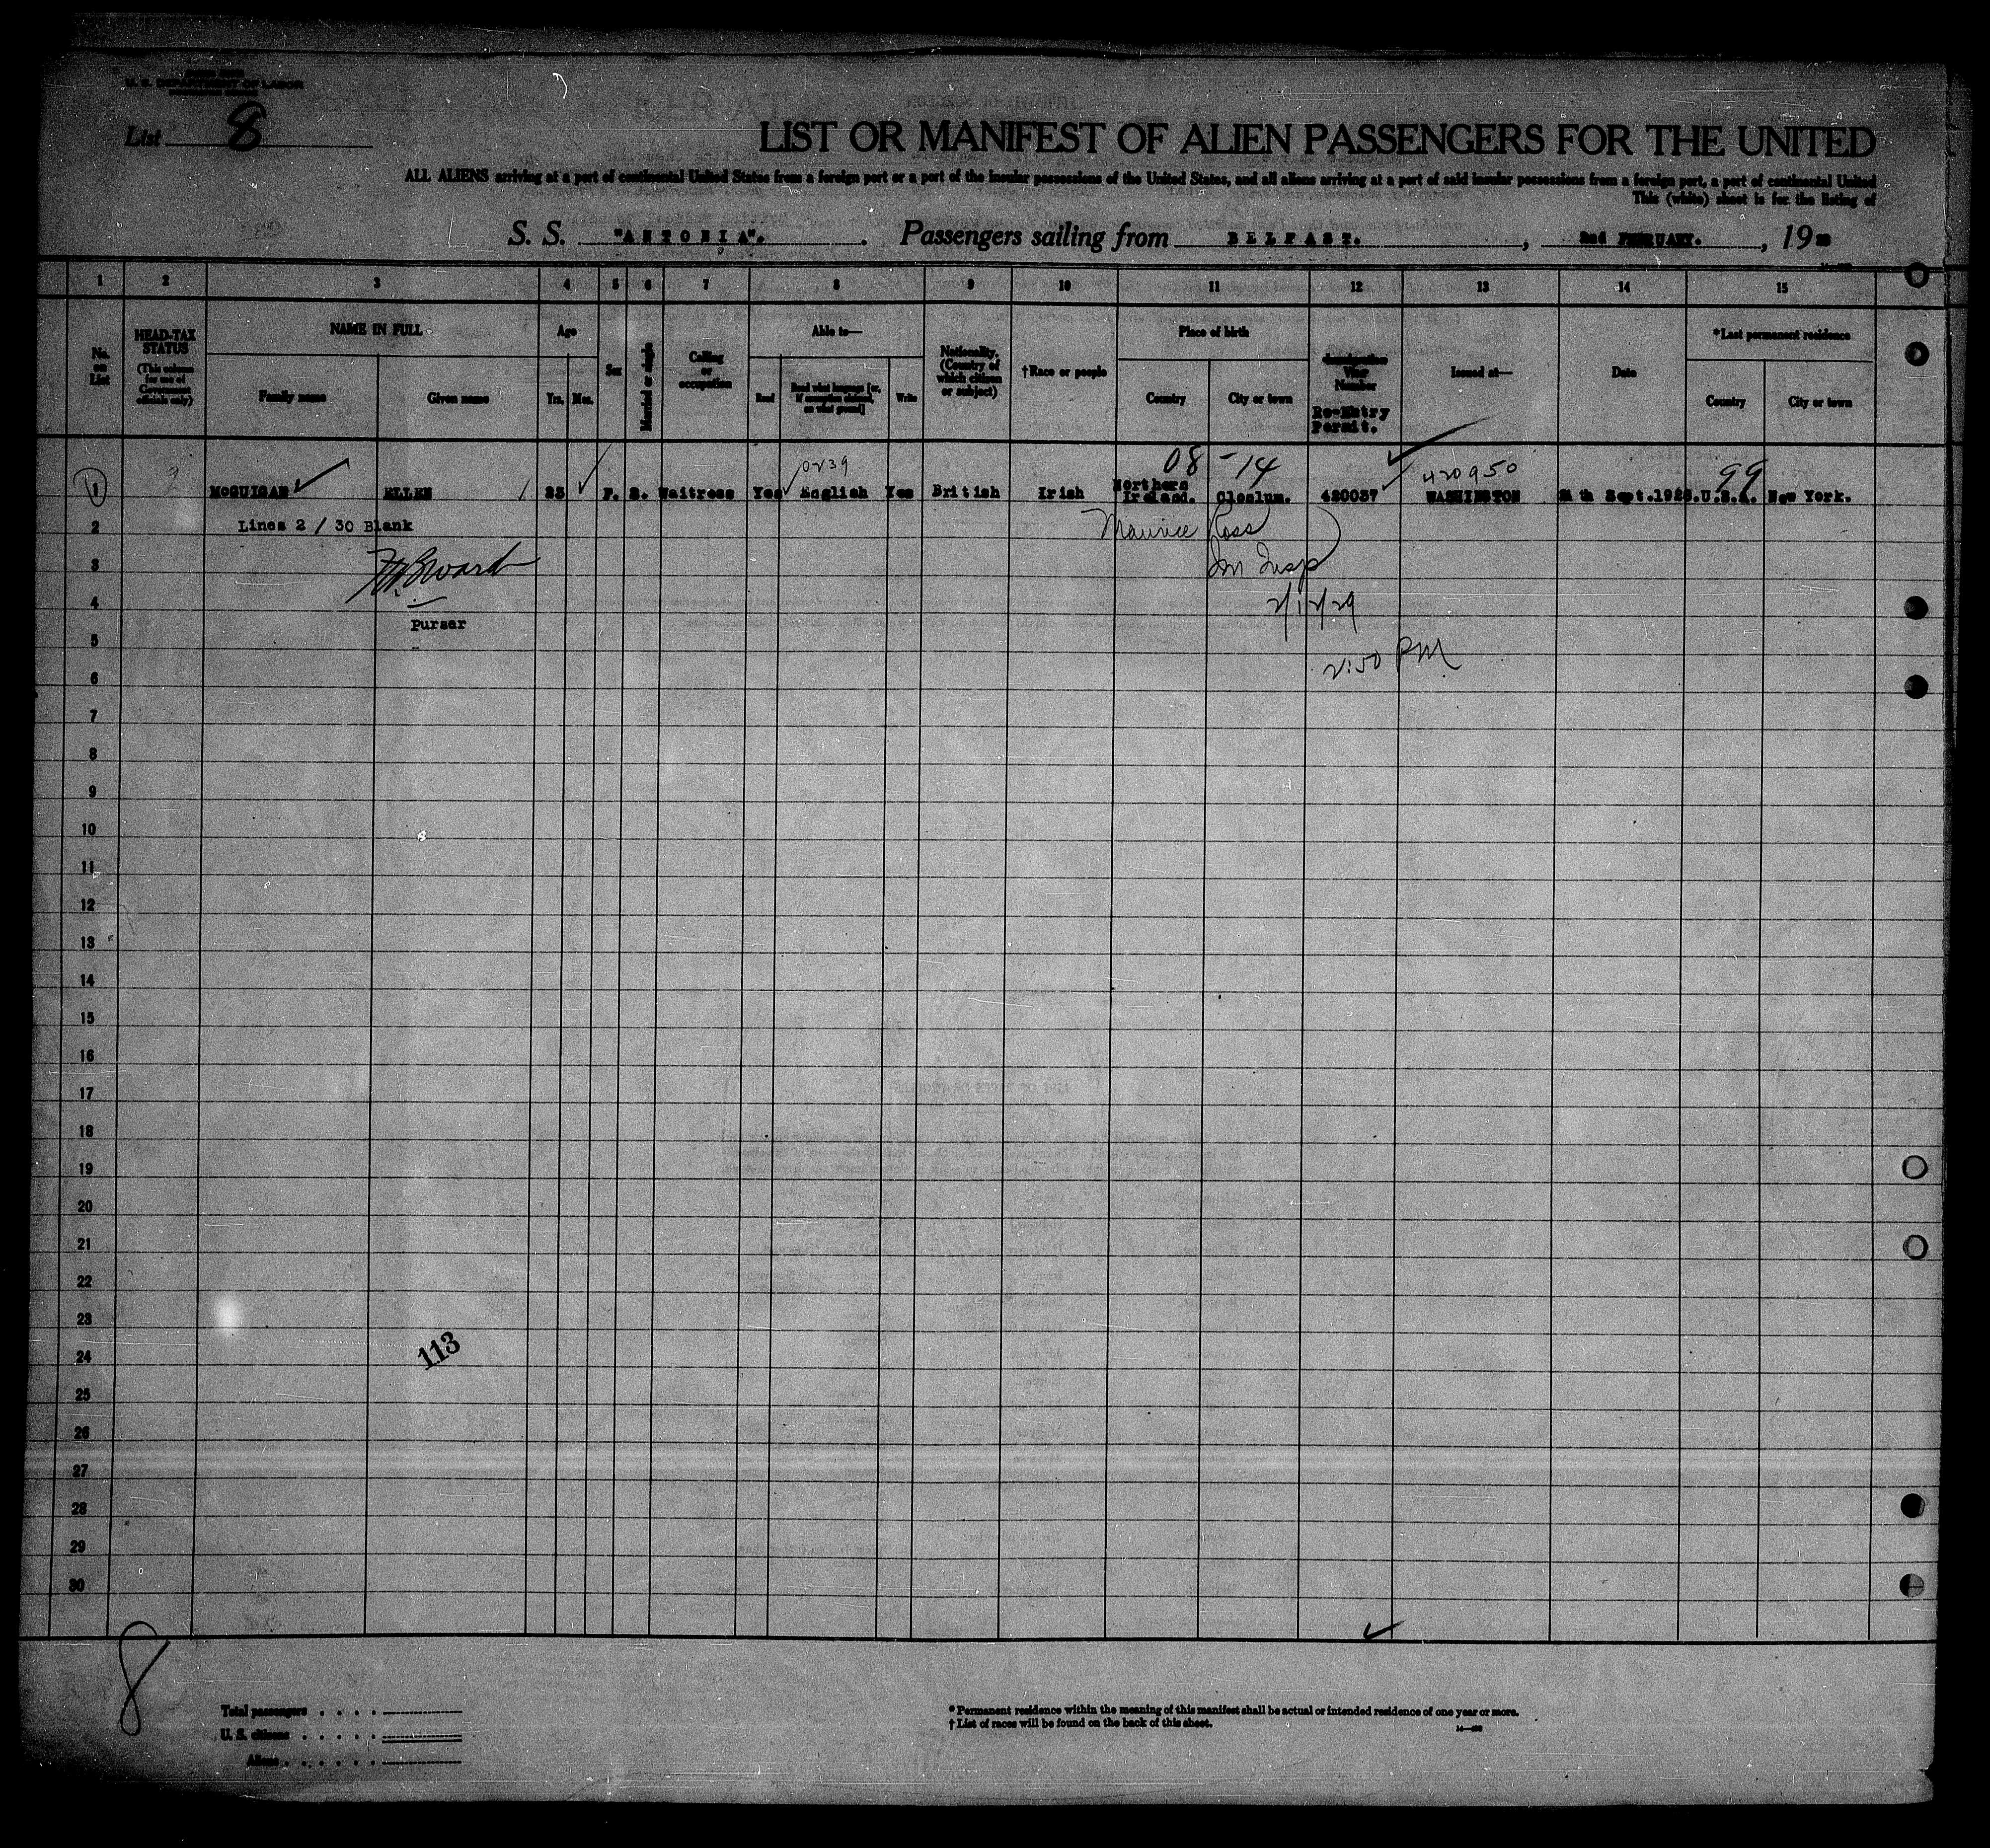 U. S. DEPARTMENT OF LABOR
List 8
LIST OR MANIFEST OF ALIEN PASSENGERS FOR THE UNITED
ALL ALIENS arriving at a port of continental United States from a foreign port or a port of the insular possessions of the United States, and all aliens arriving at a port of said insular possessions from a foreign port, a port of continental United
This (white) sheet is for the listing of
S. S. "ANTONIA". Passengers sailing from BELFAST. , 2nd FEBRUARY. , 19
1 2 3 4 5 6 7 8 9 10 11 12 13 14 15
No. on List
HEAD-TAX STATUS (This column for use of Government officials only)
NAME IN FULL
Family name
Given name
Age
Yrs. Mos.
Sex
Married or single
Calling or occupation
Able to—
Read
Read what language [or, if exemption claimed, on what ground]
Write
Nationality. (Country of which citizen or subject)
†Race or people
Place of birth
Country
City or town
Immigration Visa Number
Re-Entry Permit.
Issued at—
Date
*Last permanent residence
Country
City or town
0239 08 -14 420950 99
1 McGUIGAN ELLEN 23 F. S. Waitress Yes English Yes British Irish Northern Ireland. 420037 WASHINGTON Sept. U.S.A. New York.
2 Lines 2 / 30 Blank Maurice Ross
3 Im Insp
4 2/12/29
Purser
5 2:50 PM
6
7
8
9
10
11
12
13
14
15
16
17
18
19
20
21
22
23
113
24
25
26
27
28
29
30
8
Total passengers
U. S. citizens
Aliens
* Permanent residence within the meaning of this manifest shall be actual or intended residence of one year or more.
† List of races will be found on the back of this sheet.